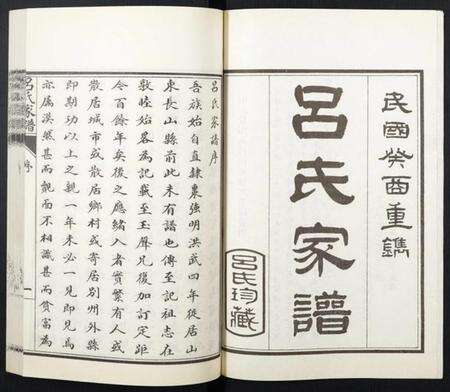 民國癸酉重鐫
呂氏家譜
呂氏珍藏
呂氏家譜序
吾族始自直隸棗強明洪武四年徙居山
東長山縣前此未有譜也傳至記祖志在
敦睦始畧為記載至玉聲兄復加訂定距
今百餘年矣後之應緒入者實繁有人或
散居城市或散居鄉村或寄居別州外縣
即期功以上之親一年未必一見即見焉
亦屬漠然甚而覿面不相識甚而貧富為
呂氏家譜
序
一